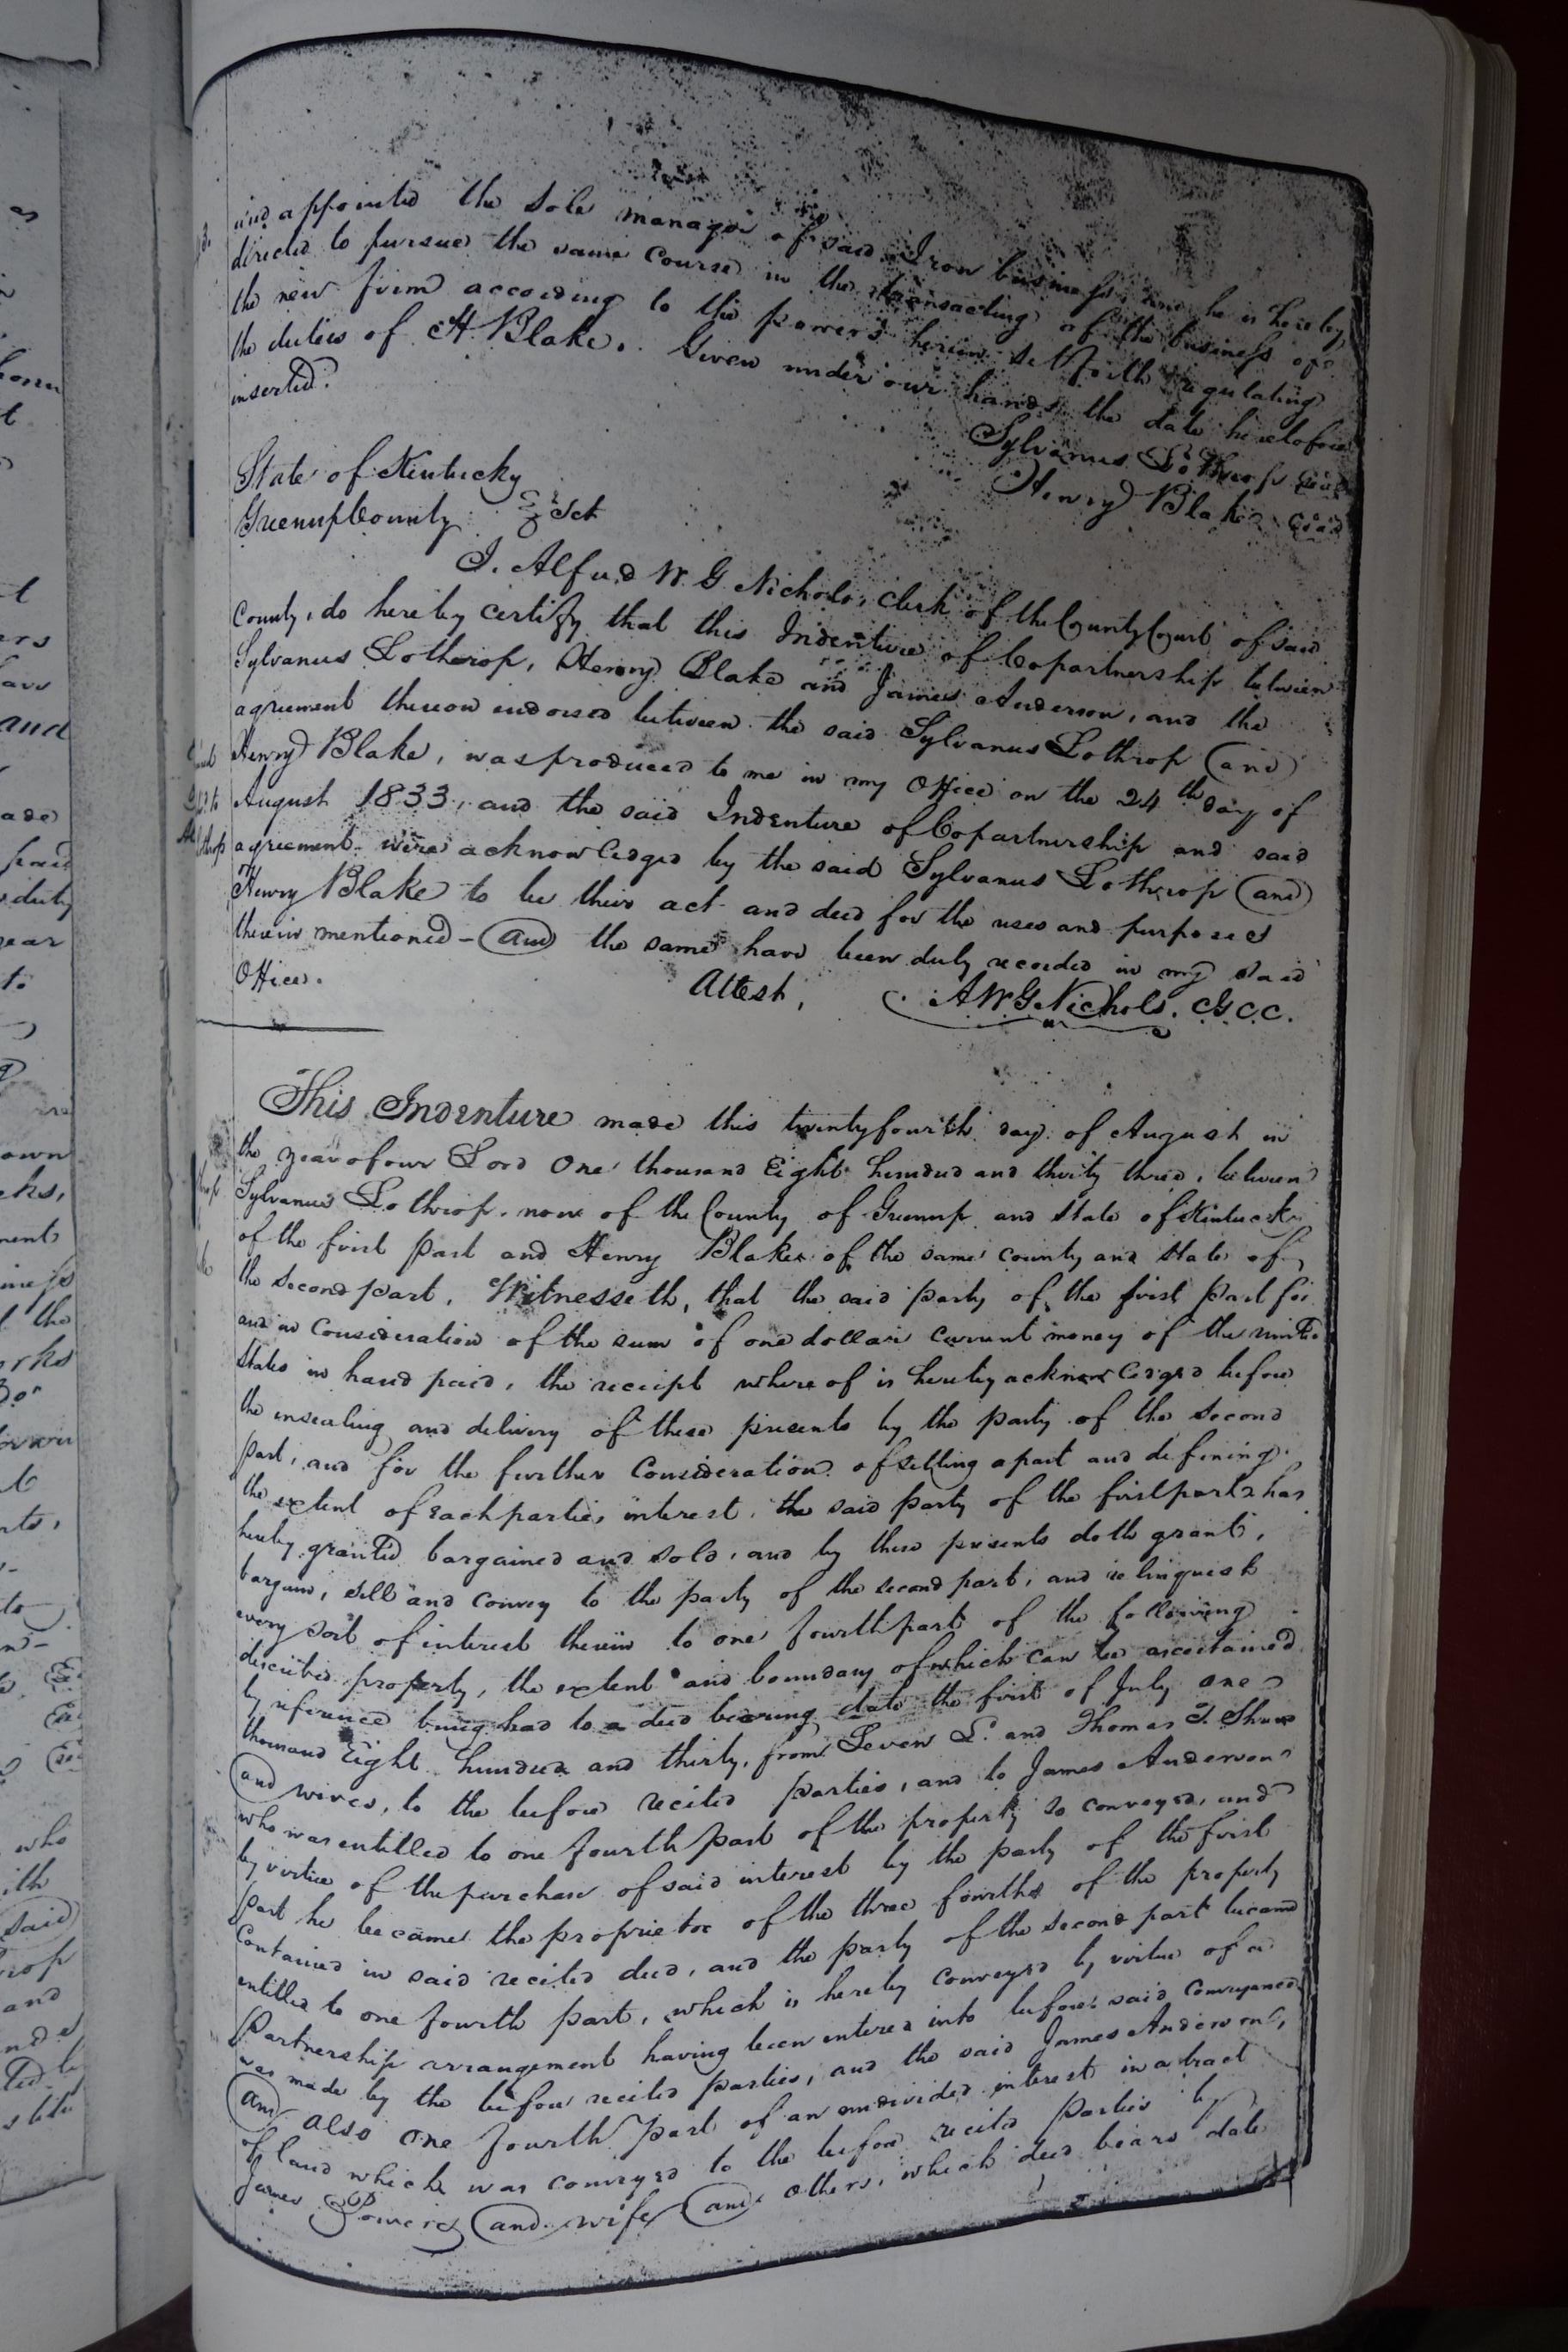 and appointed the sole manager of said Iron business, and he is hereby
directed to pursue the same course in the transacting of the business of
the new firm according to the powers herein set forth regulating
the duties of H Blake. Given under our hands the date heretofore
inserted.
Sylvanus Lothrop Seal
Henry Blake Seal
State of Kentucky
Greenup County Sct
I. Alfred W. G Nichols, clerk of the County Court of said
County, do hereby certify that this Indenture of Copartnership between
Sylvanus Lothrop, Henry Blake and James Anderson, and the
agreement thereon endorsed between the said Sylvanus Lothrop (and)
Henry Blake, was produced to me in my Office on the 24th day of
August 1833, and the said Indenture of Copartnership and said
agreement were acknowledged by the said Sylvanus Lothrop (and)
Henry Blake to be their act and deed for the uses and purposes
therein mentioned - (and) the same have been duly recorded in my said
Office.
Attest, A W G Nichols. C G C C.
This Indenture made this twenty fourth day of August in
the year of our Lord One thousand Eight hundred and thirty three, between
Sylvanus Lothrop. now of the County of Greenup and State of Kentucky
of the first part and Henry Blake of the same county and state of
the second part. Witnesseth, that the said party of the first part for
and in consideration of the sum of one dollar current money of the united
States in hand paid, the receipt where of is hereby acknowledged before
the ensealing and delivery of these presents by the party of the second
part, and for the further consideration of setting apart and defining
the extent of each parties interest. the said party of the first part has
hereby granted bargained and sold, and by these presents doth grant,
bargain, sell and convey to the party of the second part, and relinquish
every sort of interest therein to one fourth part of the following
described property, the extent and boundary of which can be ascertained
by reference being had to a deed bearing date the first of July one
thousand Eight hundred and thirty, from Leven L. and Thomas T. Shreve
(and) wives, to the before recited parties, and to James Anderson
who was entitled to one fourth part of the property so conveyed, and
by virtue of the purchase of said interest by the party of the first
part he became the proprietor of the three fourths of the property
Contained in said recited deed, and the party of the second part became
entitled to one fourth part, which is hereby conveyed by virtue of a
Partnership arrangement having been entered into before said conveyance
was made by the before recited parties, and the said James Anderson,
(and) also one fourth part of an undivided interest in a tract
of land which was conveyed to the before recited parties by
James Powers (and) wife (and) others, which deed bears date